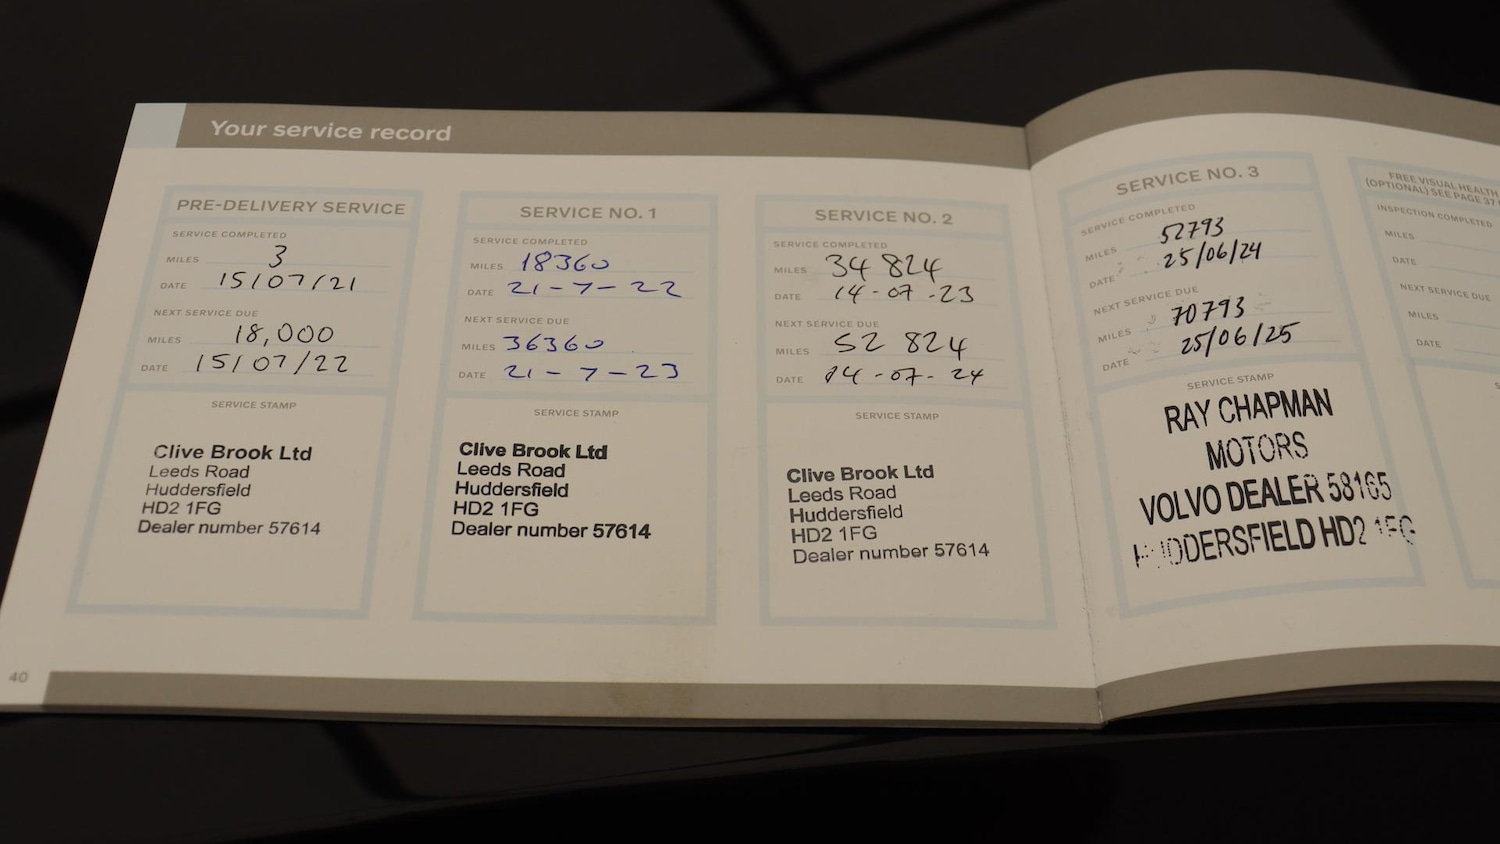 Your service record
PRE-DELIVERY SERVICE
SERVICE COMPLETED
MILES 3
DATE 15/07/21
NEXT SERVICE DUE
MILES 18,000
DATE 15/07/22
SERVICE STAMP
Clive Brook Ltd
Leeds Road
Huddersfield
HD2 1FG
Dealer number 57614
SERVICE NO. 1
SERVICE COMPLETED
MILES 18360
DATE 21-7-22
NEXT SERVICE DUE
MILES 36360
DATE 21-7-23
SERVICE STAMP
Clive Brook Ltd
Leeds Road
Huddersfield
HD2 1FG
Dealer number 57614
SERVICE NO. 2
SERVICE COMPLETED
MILES 34 824
DATE 14-07-23
NEXT SERVICE DUE
MILES 52 824
DATE 14-07-24
SERVICE STAMP
Clive Brook Ltd
Leeds Road
Huddersfield
HD2 1FG
Dealer number 57614
SERVICE NO. 3
SERVICE COMPLETED
MILES 52793
DATE 25/06/24
NEXT SERVICE DUE
MILES 70793
DATE 25/06/25
SERVICE STAMP
RAY CHAPMAN
MOTORS
VOLVO DEALER 58165
HUDDERSFIELD HD2 1FG
FREE VISUAL HEALTH
(OPTIONAL) SEE PAGE 37
INSPECTION COMPLETED
MILES
DATE
NEXT SERVICE DUE
MILES
DATE
40